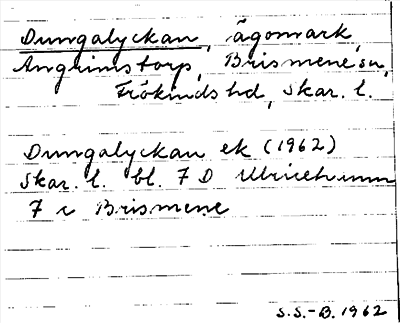 Dungalyckan, ägomark,
Angrimstorp, Brismene sn,
Frökinds hd, Skar. l.
Dungalyckan ek (1962)
Skar. l. bl. 7 D Ulricehamn
7 c Brismene
S.S.-B. 1962